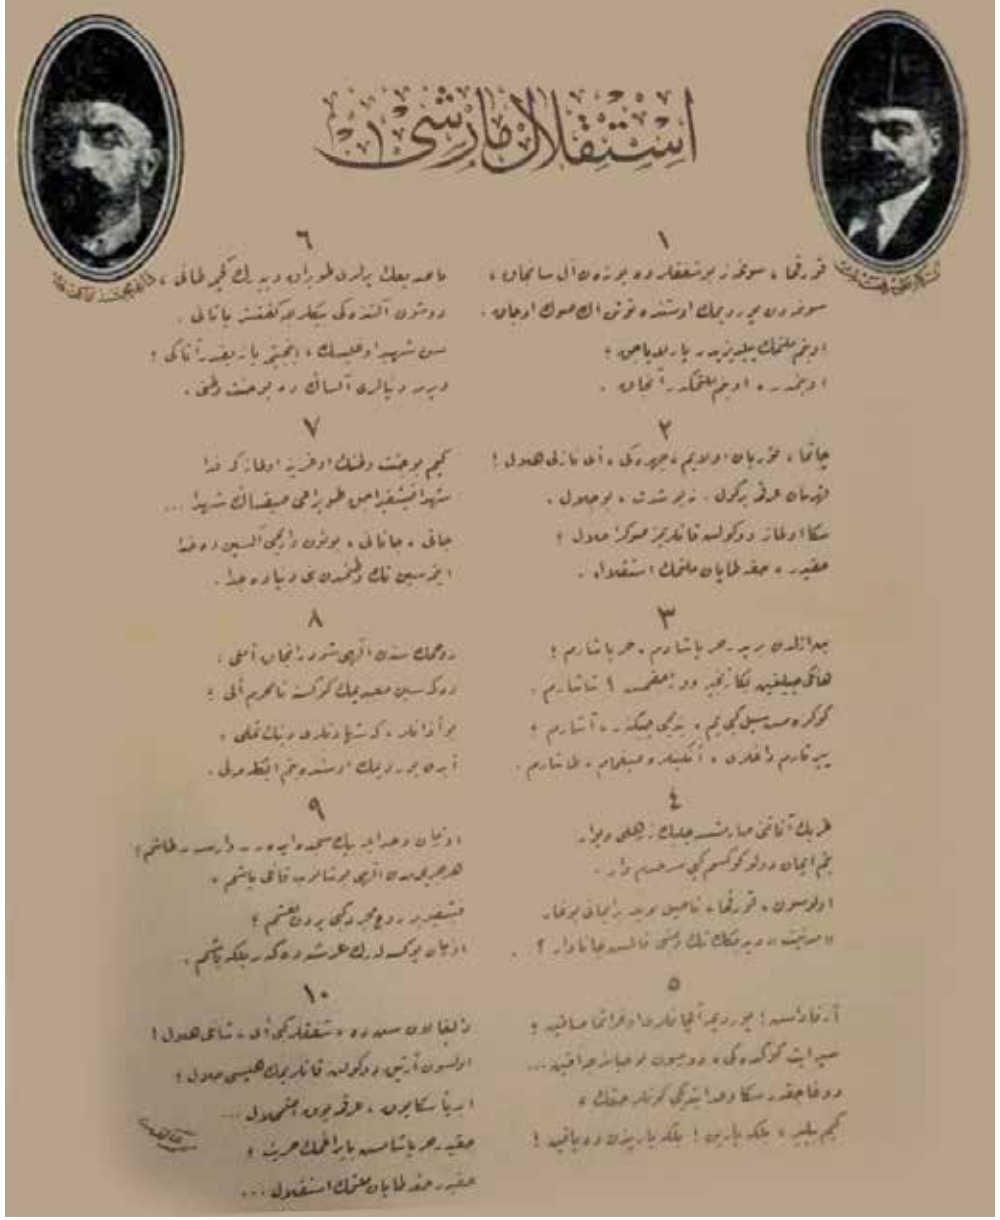 استقلال مارشی
١
قورقما ، سونمز بو شفقلرده یوزن آل سانجاق ،
سونمدن یوردیمك اوستنده توتن الڭ صوڭ اوجاق .
او بنم ملتمڭ ییلدیزیدر پارلایاجق ؛
او بنمدر ، او بنم ملتمڭدر آنجاق .
٢
چاتما ، قوربان اولایم ، چهرەڭی ، ای نازلی هلال !
قهرمان عرقمه برگول ، نه بو شدت ، بو جلال ،
سڭا اولماز دوكولن قانلریمز صوڭرا حلال ؛
حقیدر ، حقه طاپان ملتمڭ استقلال .
٣
بن ازلدن بریدر حر یاشادم ، حر یاشارم ؛
هانگی چیلغین بڭا زنجیر ووراجقمش ؟ شاشارم .
كوكرەمش سیل گبی یم ، بندمی چیگنر ، آشارم ؛
ییرتارم داغلری ، انگینلره صیغمام ، طاشارم .
٤
غربڭ آفاقنی صارمشسه چلیك زرهلی دیوار
بنم ایمان دولو گوگسم گبی سرحدم وار .
اولوسون ، قورقما ، ناصیل بویله بر ایمانی بوغار
« مدنیت » دیدیگڭ تك دیشی قالمش جاناوار ؟ .
٥
آرقاداش ! یوردیمه آلچاقلری اوغراتما صاقین ؛
سپر ایت گوكدەڭی ، دورسون بو حیاسزجه آقین ...
دوغاجقدر سڭا وعد ایتدیگی گونلر حقڭ ،
كیم بیلیر ، بلكه یارین ! بلكه یاریندن ده یاقین !
٦
باصدیغڭ یرلری طوپراق دییەرك گچمه طانی ،
دوشون آلتندەكی بیڭلرجه كفنسز یاتانی .
سن شهید اوغلیسڭ ، اینجیتمه یازیقدر آتاڭی ؛
ویرمه دنیالری آلساڭ ده بو جنت وطنی .
٧
كیم بو جنت وطنڭ اوغرینه اولماز كه فدا
شهدا فیشقیراجق طوپراغی صیقساڭ شهدا ...
جانی ، جانانی ، بوتون واریمی آلسین ده خدا
ایتمەسین تك وطنمدن بنی دنیاده جدا .
٨
روحمڭ سندن الهی شودر آنجاق املی ؛
دگمەسین معبدیمڭ گوگسنه نامحرم الی ؛
بو اذانلر ، كه شهادتلری دینڭ تملی ،
ابدی یوردیمڭ اوستنده بنم ایڭلەملی .
٩
او زمان وجد ایله بیڭ سجده ایدر ، وارسه ، طاشم ؛
هر جریحەمدن الهی بوشانوب قانلی یاشم ،
فیشقیریر روح مجرد گبی یردن نعشم ؛
او زمان یوكسلەرك عرشه دگر بلكه باشم .
١٠
دالغالان سن ده ، شفقلر گبی ای ، شانلی هلال !
اولسون آرتیق دوكولن قانلریمڭ هپسی حلال ؛
ابدیاً سڭا یوق ، عرقمه یوق اضمحلال ...
حقیدر حر یاشامش بایراغمڭ حریت ؛
حقیدر حقه طاپان ملتمڭ استقلال ...